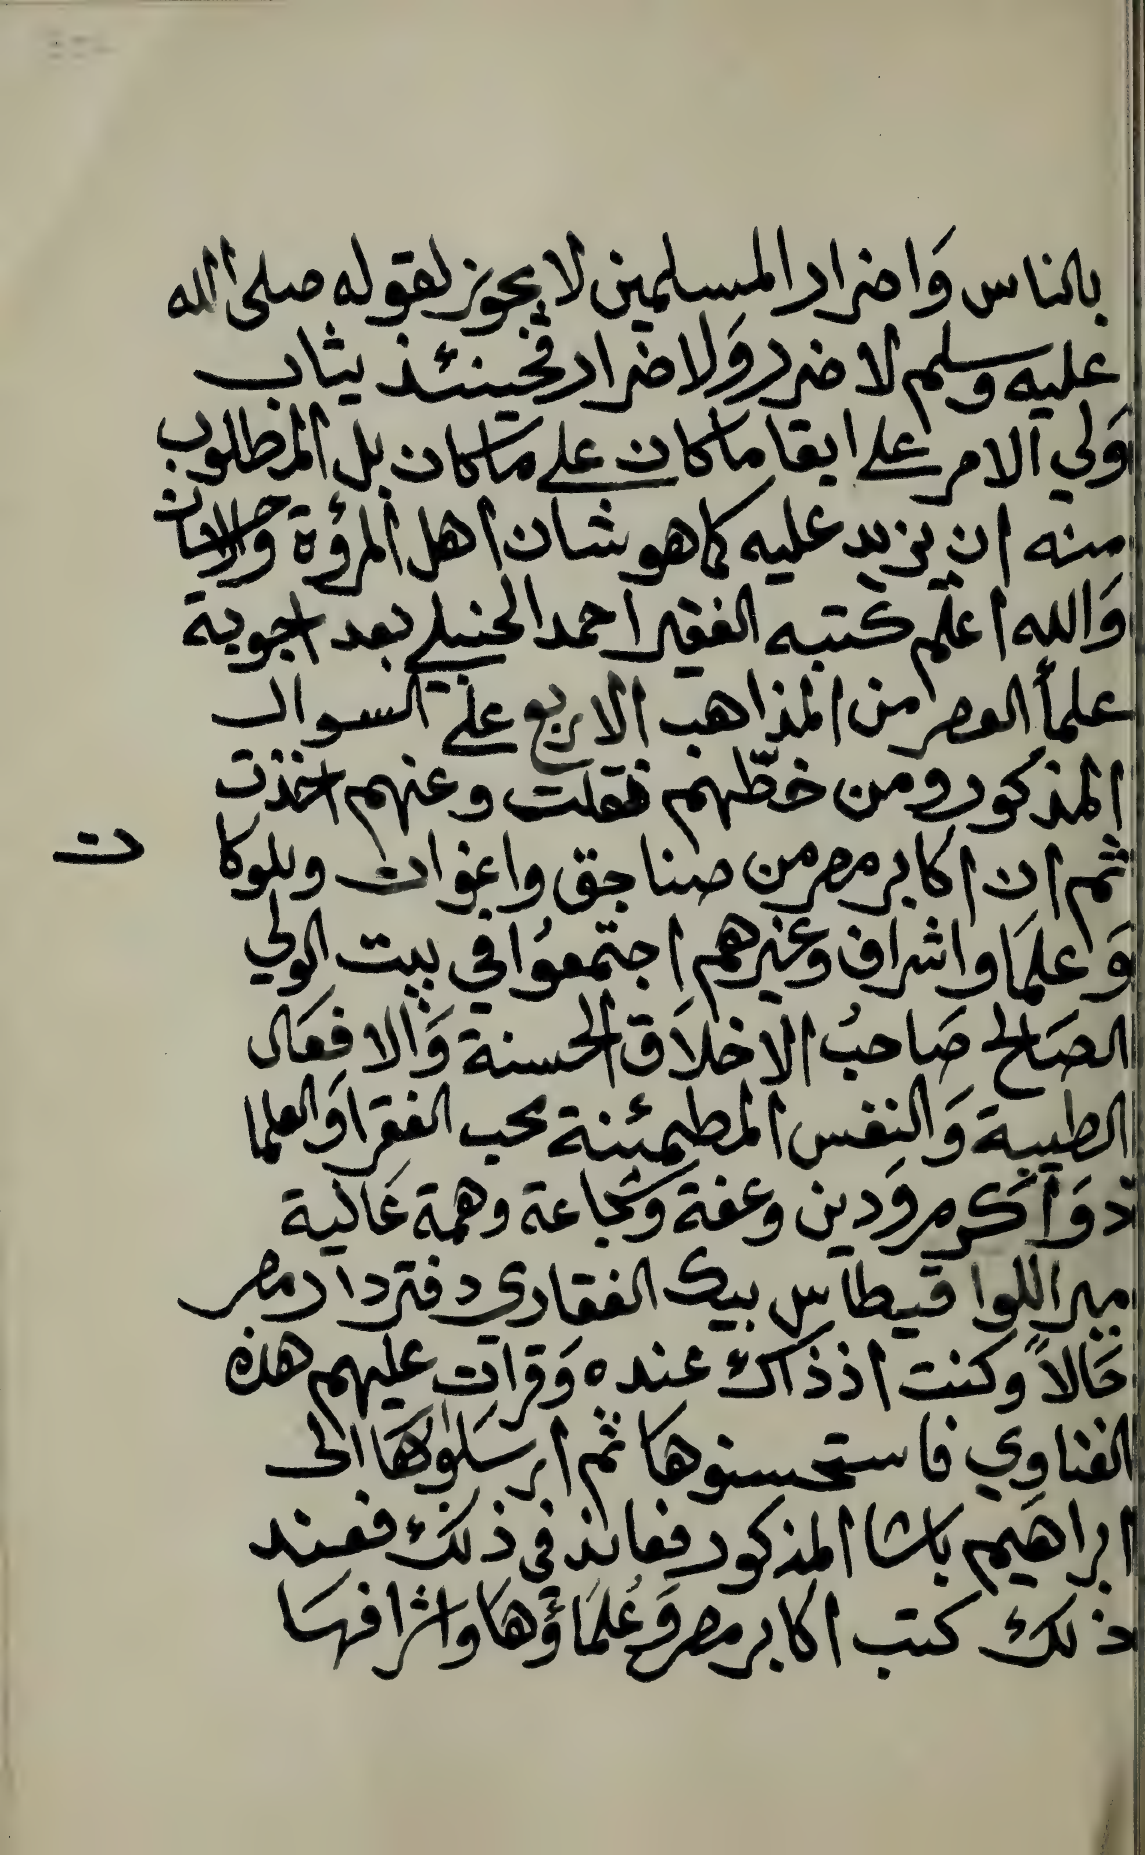 بالناس وَاضرار المسلمين لا يجوز لقوله صلى الله
عليه وسلم لا ضرر وَلا ضرار فحينئذ يثاب
وَلي الامر على ابقا ما كان على ما كان بل المطلوب
منه ان يزيد عليه كما هو شان اهل المرؤة
وَالله اعلم كتبه الفقير احمد الحنبلي بعد اجوبة
علمأ العصر من المذاهب الاربع على السوال
المذكور ومن خطّهم نقلت وعنهم اخذت
ثم ان اكابر مصر من صناجق واغوات وبلوكا
ت
وَعلمَا واشراف وغيرهم اجتمعُوا في بيت الولي
الصَالح صَاحبُ الاخلاَق الحسنة وَالافعَال
الطيبة وَالنفس المطمئنة يحب الفقرا وَالعلما
ذو أكرم وَدين وعفة وشجاعة وهمة عَالية
مير اللوا قيطاس بيك الفقاري دفتردار مصر
حَالاً وكنت اذ ذاك عنده وَقرات عليهم هذه
الفتاوي فاستحسنوهَا ثم ارسَلوهَا الى
ابراهيم باشا المذكور فعاند في ذلك فعند
ذلك كتب اكابر مصر وَعُلمَاؤهَا واشرافهَا